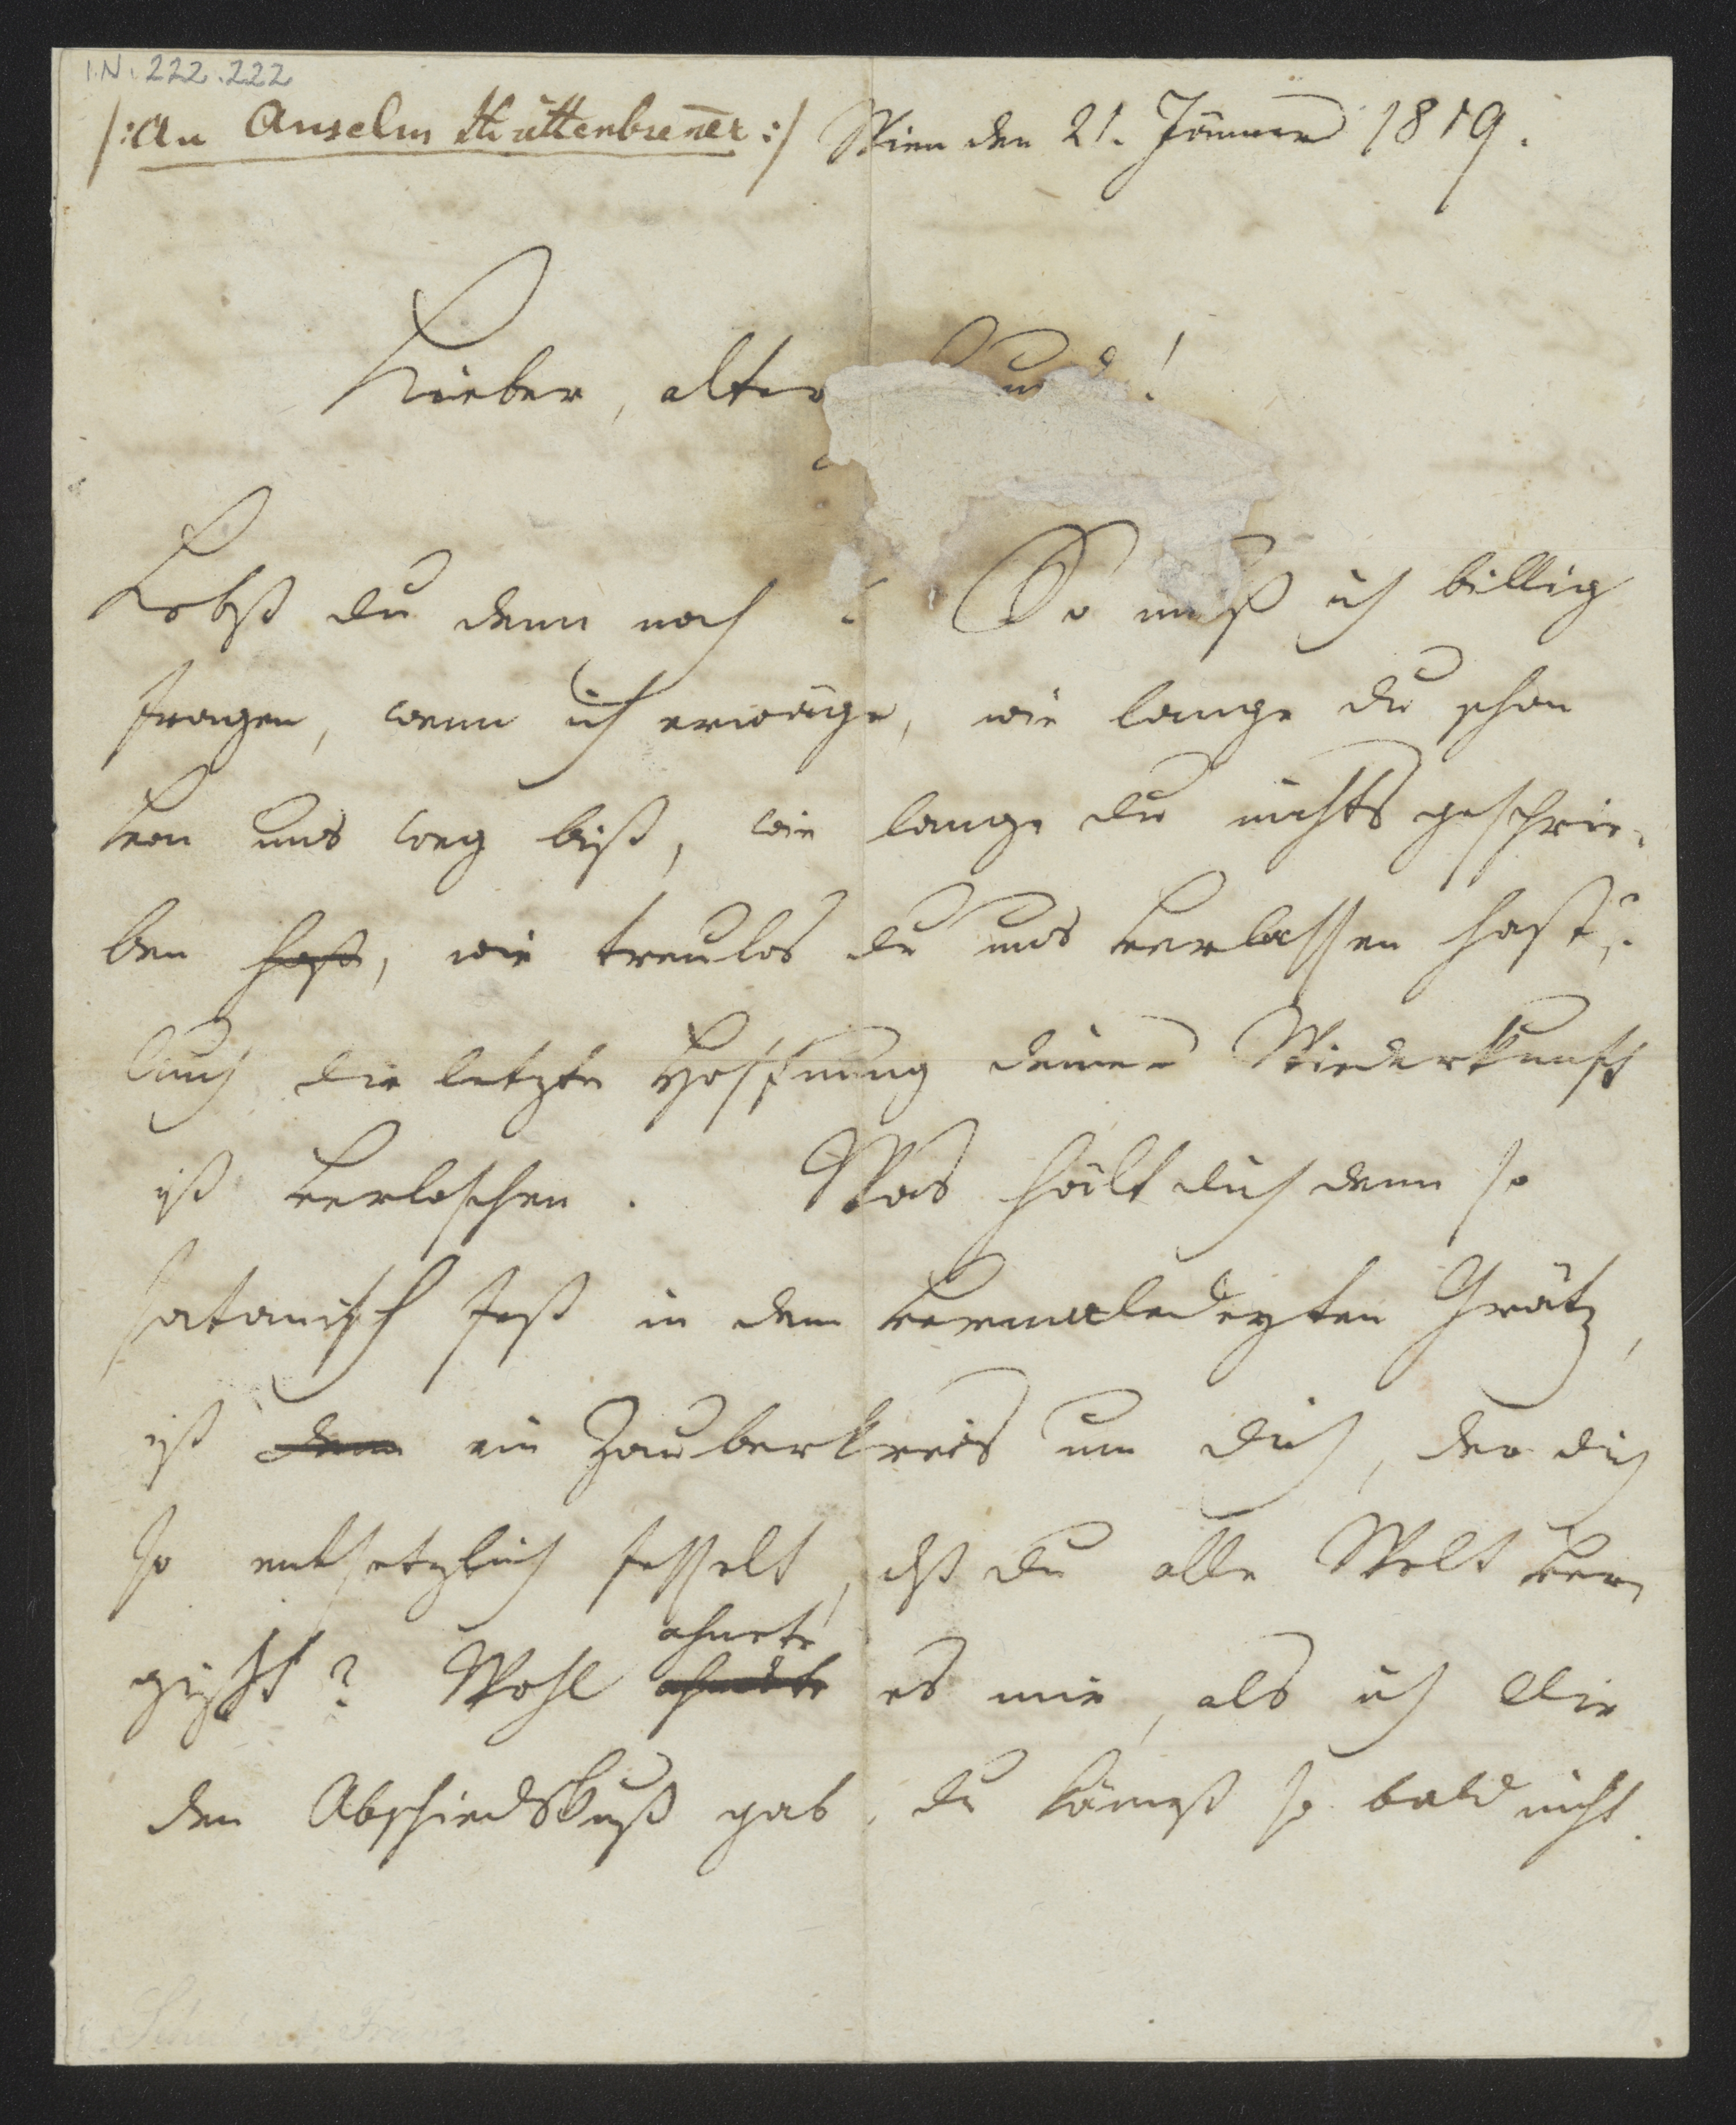 I.N. 222.222
/: An Anselm Hüttenbrenner :/ Wien den 21. Jänner 1819.
Lieber, alter !
Lebst du denn noch? So muß ich billig
fragen, wenn ich erwäge, wie lange du schon
von uns weg bist, wie lange du nichts geschrie-
ben hast, wie treulos du uns verlassen hast?
Auch die letzte Hoffnung deiner Wiederkunft
ist verloschen. Was hält dich denn so
satanisch fest in dem vermaledeyten Grätz,
ist denn ein Zauberkreis um dich, der dich
so entsetzlich fesselt, dß du alle Welt ver-
gißst? Wohl
ahnete
ahndete es mir, als ich dir
den Abschiedskuß gab, du kämest so bald nicht.
Schubert, Franz